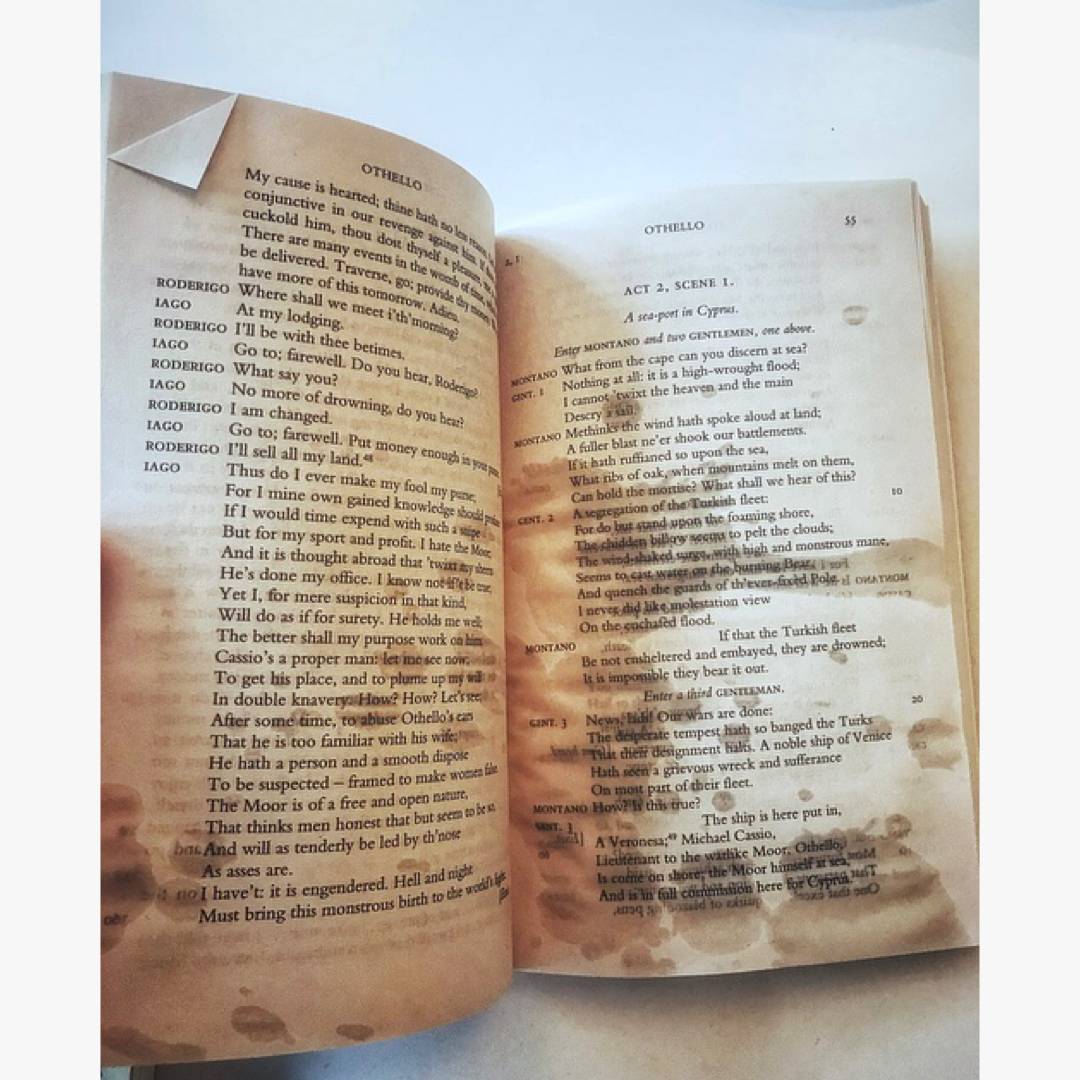 OTHELLO
My cause is hearted; thine hath no less reason
conjunctive in our revenge against him. If thou
cuckold him, thou dost thyself a pleasure,
There are many events in the womb of time,
be delivered. Traverse, go; provide thy money.
have more of this tomorrow. Adieu.
RODERIGO Where shall we meet i'th'morning?
IAGO At my lodging.
RODERIGO I'll be with thee betimes.
IAGO Go to; farewell. Do you hear, Roderigo?
RODERIGO What say you?
IAGO No more of drowning, do you hear?
RODERIGO I am changed.
IAGO Go to; farewell. Put money enough in your
RODERIGO I'll sell all my land.48
IAGO Thus do I ever make my fool my purse;
For I mine own gained knowledge should
If I would time expend with such a snipe
But for my sport and profit. I hate the Moor,
And it is thought abroad that 'twixt my sheets
He's done my office. I know not if't be true,
Yet I, for mere suspicion in that kind,
Will do as if for surety. He holds me well;
The better shall my purpose work on him.
Cassio's a proper man: let me see now;
To get his place, and to plume up my will
In double knavery. How? How? Let's see;
After some time, to abuse Othello's ears
That he is too familiar with his wife;
He hath a person and a smooth dispose
To be suspected – framed to make women false.
The Moor is of a free and open nature,
That thinks men honest that but seem to be so,
And will as tenderly be led by th'nose
As asses are.
I have't: it is engendered. Hell and night
Must bring this monstrous birth to the world's light.
2, 1 OTHELLO 55
ACT 2, SCENE 1.
A sea-port in Cyprus.
Enter MONTANO and two GENTLEMEN, one above.
MONTANO What from the cape can you discern at sea?
GENT. 1 Nothing at all: it is a high-wrought flood;
I cannot 'twixt the heaven and the main
Descry a sail.
MONTANO Methinks the wind hath spoke aloud at land;
A fuller blast ne'er shook our battlements.
If it hath ruffianed so upon the sea,
What ribs of oak, when mountains melt on them,
Can hold the mortise? What shall we hear of this? 10
GENT. 2 A segregation of the Turkish fleet:
For do but stand upon the foaming shore,
The chidden billow seems to pelt the clouds;
The wind-shaked surge, with high and monstrous mane,
Seems to cast water on the burning Bear,
And quench the guards of th'ever-fixèd Pole.
I never did like molestation view
On the enchafèd flood.
MONTANO If that the Turkish fleet
Be not ensheltered and embayed, they are drowned;
It is impossible they bear it out.
Enter a third GENTLEMAN.
GENT. 3 News, lads! Our wars are done: 20
The desperate tempest hath so banged the Turks
That their designment halts. A noble ship of Venice
Hath seen a grievous wreck and sufferance
On most part of their fleet.
MONTANO How? Is this true?
GENT. 3 The ship is here put in,
A Veronesa;49 Michael Cassio,
Lieutenant to the warlike Moor, Othello,
Is come on shore; the Moor himself at sea,
And is in full commission here for Cyprus.